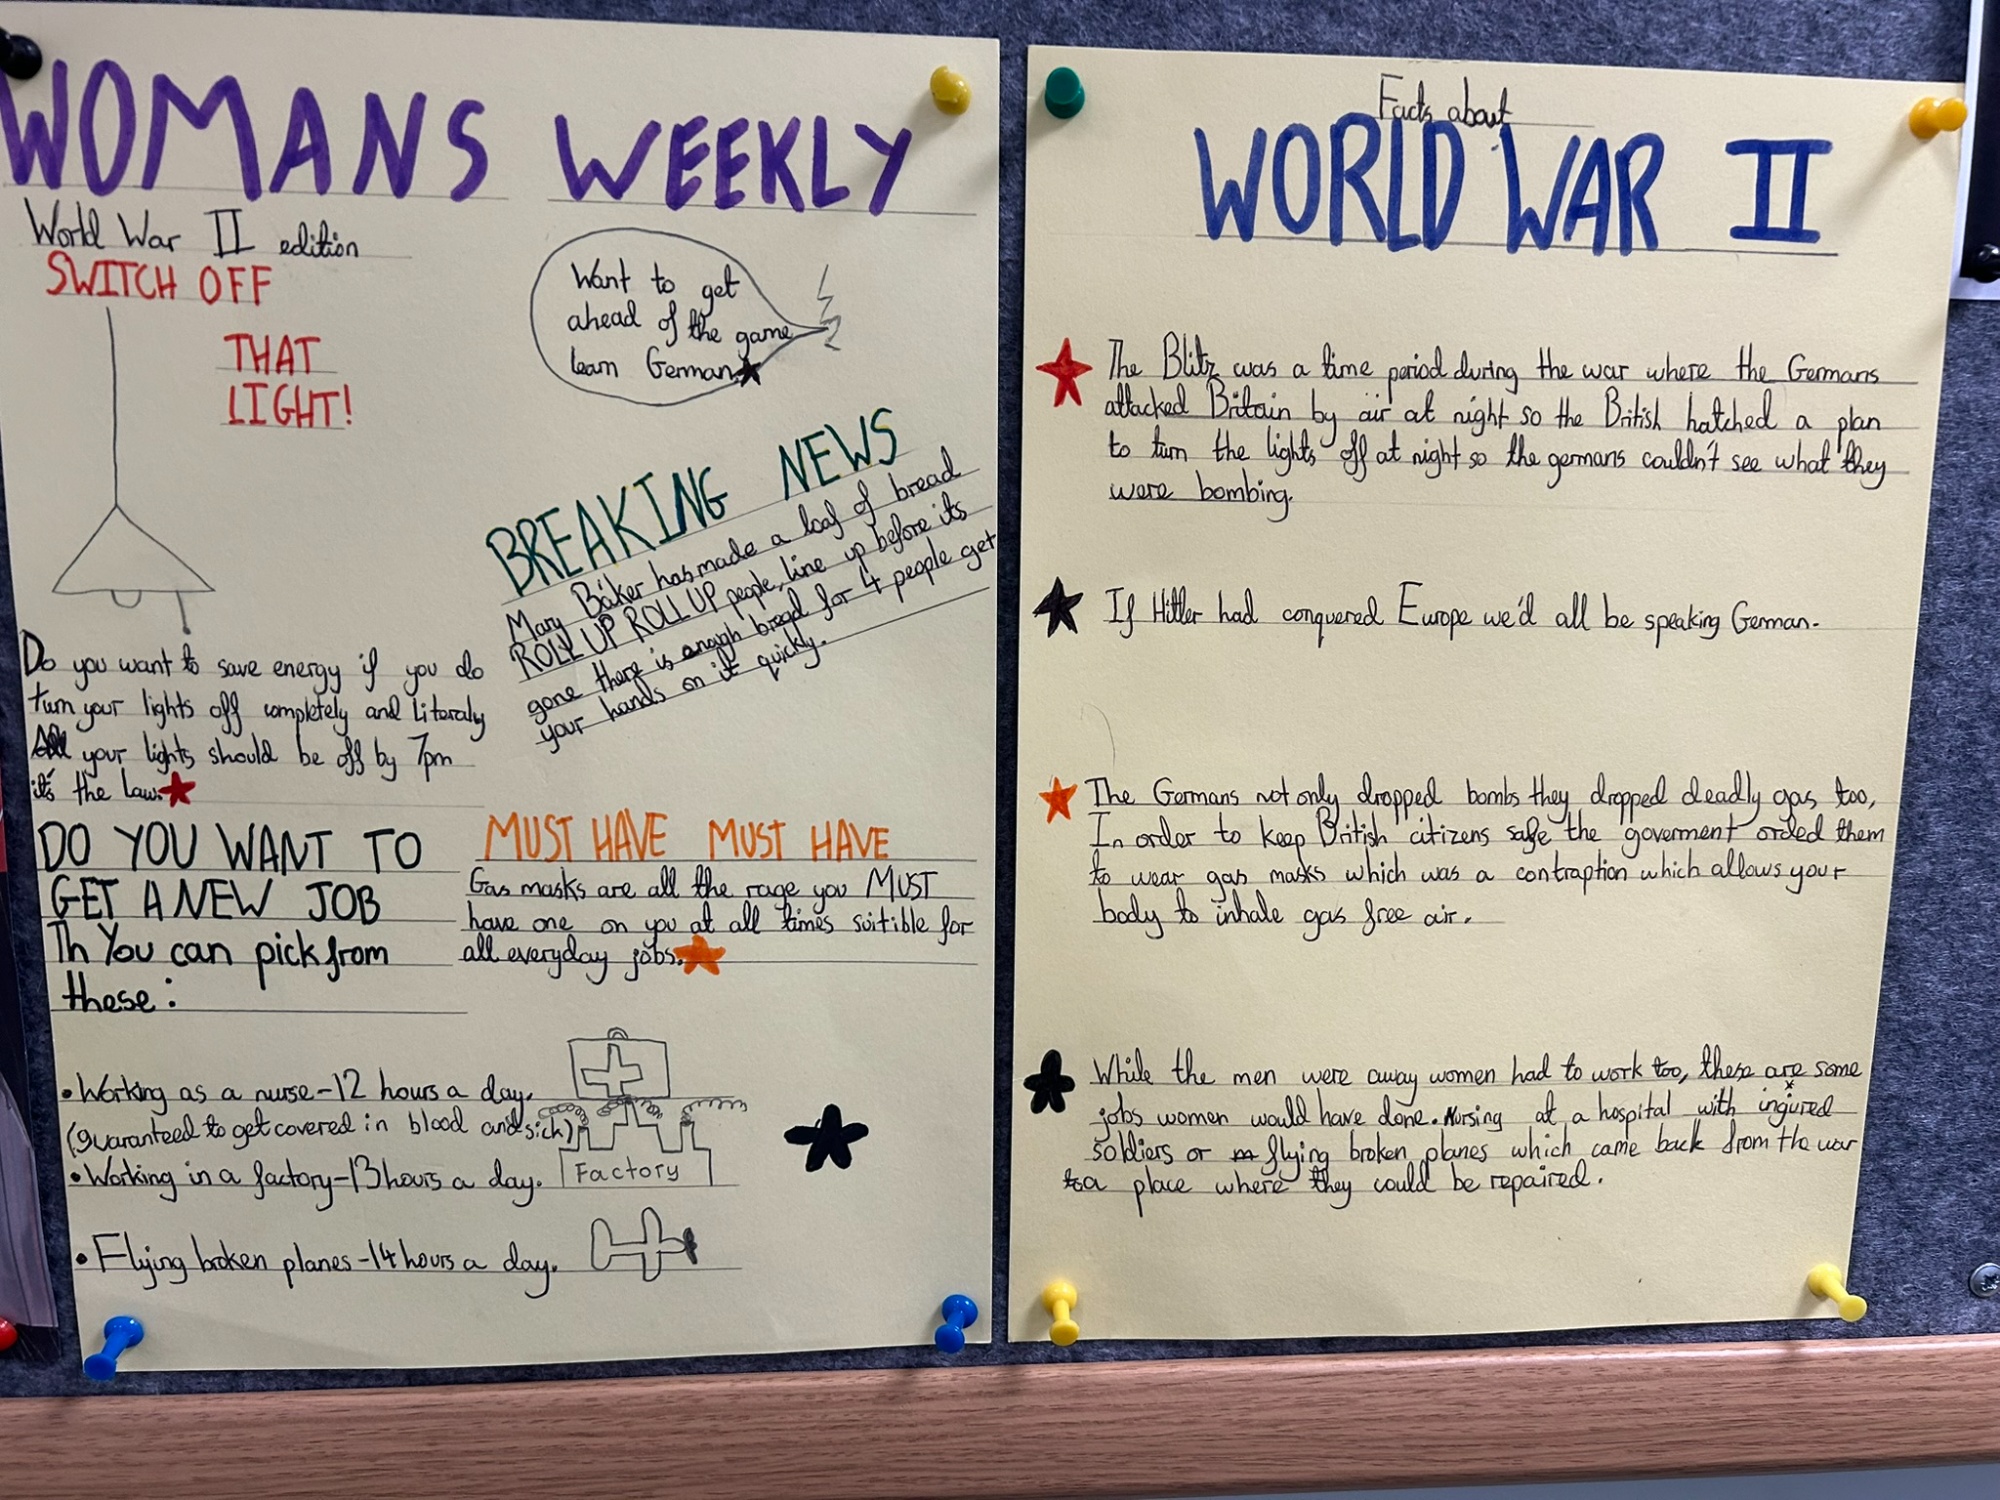 WOMANS WEEKLY
World War II edition
SWITCH OFF
THAT
LIGHT!
Want to get
ahead of the game
learn German.
BREAKING NEWS
Mary Baker has made a loaf of bread
ROLL UP ROLL UP people, line up before its
gone there is enough bread for 4 people get
your hands on it quickly.
Do you want to save energy if you do
turn your lights off completely and literaly
All your lights should be off by 7pm
it's the law.
DO YOU WANT TO
GET A NEW JOB
Th You can pick from
these:
MUST HAVE MUST HAVE
Gas masks are all the rage you MUST
have one on you at all times suitible for
all everyday jobs.
• Working as a nurse-12 hours a day.
(guaranteed to get covered in blood and sick)
• Working in a factory-13 hours a day.
Factory
• Flying broken planes-14 hours a day.
Facts about
WORLD WAR II
The Blitz was a time period during the war where the Germans
attacked Britain by air at night so the British hatched a plan
to turn the lights off at night so the germans couldn't see what they
were bombing.
If Hitler had conquered Europe we'd all be speaking German.
The Germans not only dropped bombs they dropped deadly gas too,
In order to keep British citizens safe the goverment orded them
to wear gas masks which was a contraption which allows your
body to inhale gas free air.
While the men were away women had to work too, these are some
jobs women would have done. Nursing at a hospital with injured
soldiers or flying broken planes which came back from the war
to a place where they could be repaired.